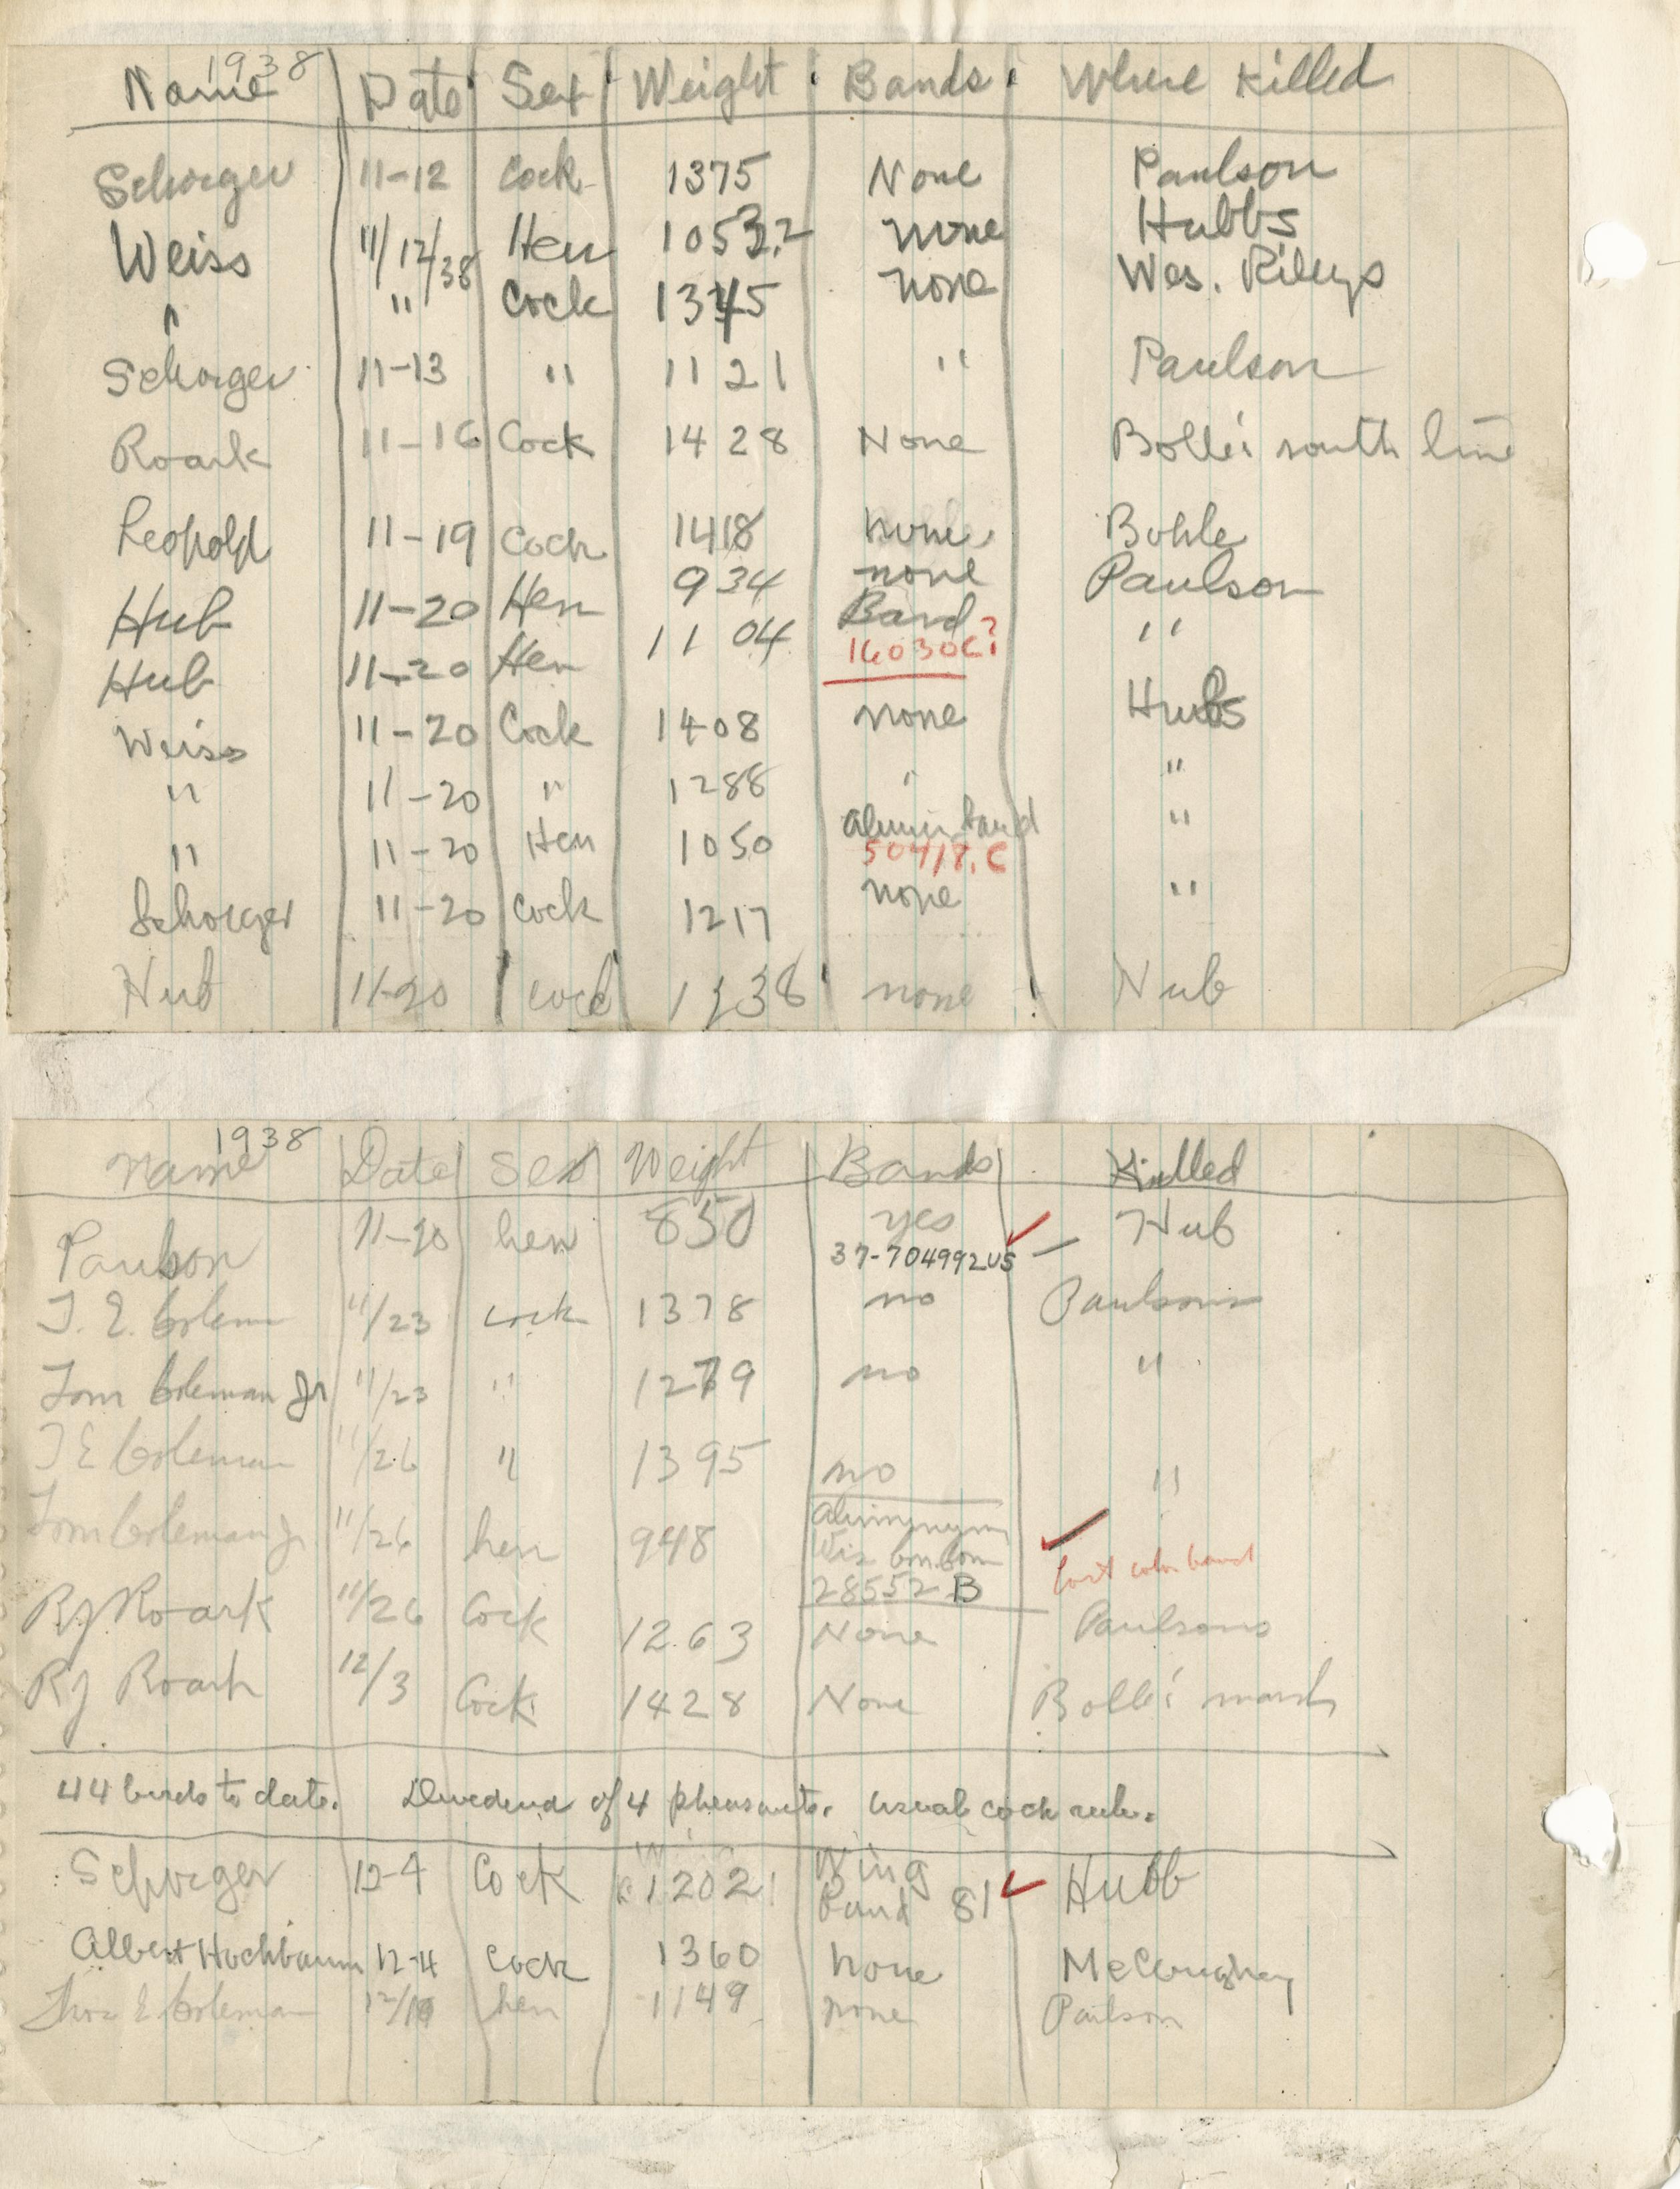 1938
Name Date Sex Weight Bands Where Killed
Schorger 11-12 Cock 1375 None Paulson
Weiss 11/12/38 Hen 1053.2 none Hubbs
" " Cock 1345 none Wes. Rileys
Schorger 11-13 " 1121 " Paulson
Roark 11-16 Cock 1428 None Bolle's south line
Leopold 11-19 Cock 1418 none Bohle
Hub 11-20 Hen 934 none Paulson
Hub 11-20 Hen 1104 Band "
16030C?
Weiss 11-20 Cock 1408 none Hubs
" 11-20 " 1288 " "
" 11-20 Hen 1050 band "
50418.C
Schorger 11-20 Cock 1217 none "
Hub 11-20 cock 1238 none Hub
1938
Name Date Sex Weight Bands Killed
Paulson 11-20 hen 850 yes Hub
37-704992US
T. E. 11/23 cock 1378 no Paulsons
Tom Coleman Jr 11/23 " 1279 no "
T E Coleman 11/26 " 1395 no "
Tom Coleman Jr 11/26 hen 948
Wis
28552 B
Lost color band
RJ Roark 11/26 Cock 1263 None Paulsons
RJ Roark 12/3 Cock 1428 None Bolle's marsh
44 birds to date. Dividend of 4 pheasants. Usual cock rule.
Schorger 12-4 Cock 1202 Wing Hubb
Band 81
Albert Hochbaum 12-4 Cock 1360 none McCoughey
Thos E Coleman hen 1149 none Paulson